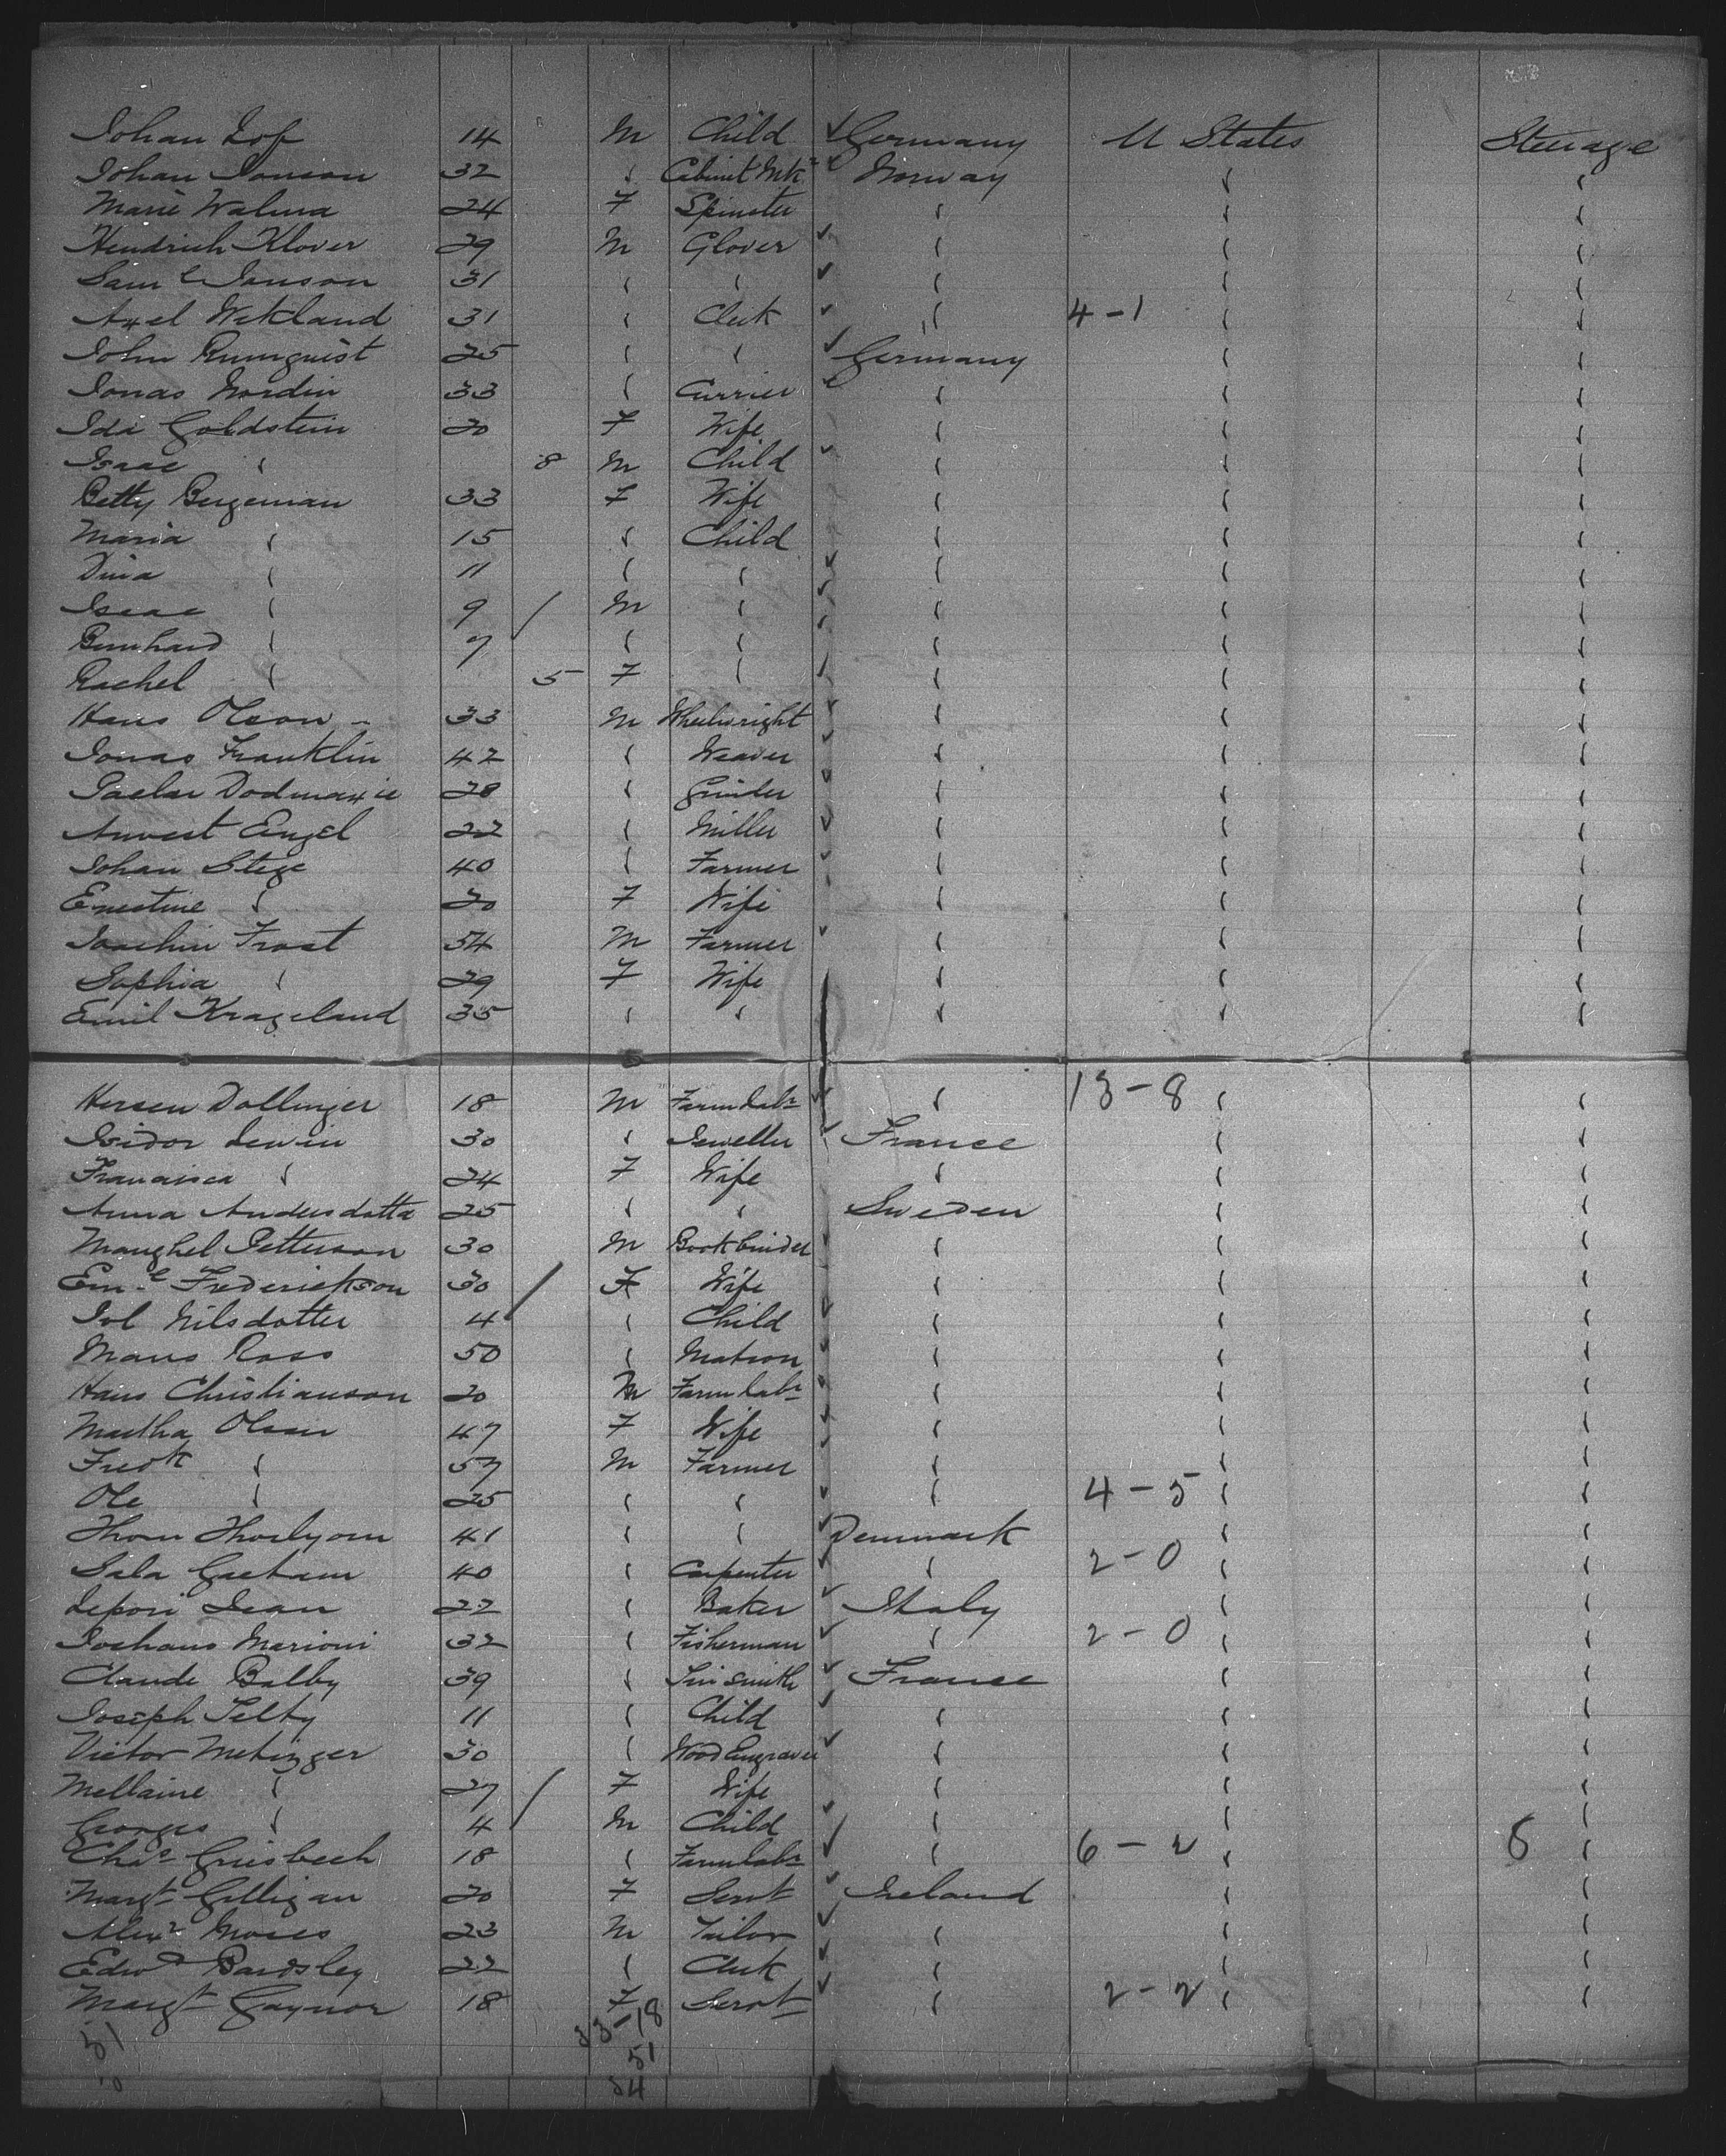 Johan Lof 14 M Child ✓ Germany U States Steerage
Johan Jonson 32 " Cabinet Mkr ✓ Norway " "
Marie Walma 24 F Spinster " " "
Hendrich Klover 29 M Glover ✓ " " "
Saml Jonson 31 " " ✓ " " "
Axel Wekland 31 " Clerk ✓ " 4-1 " "
John Rumquist 25 " " ✓ Germany " "
Jonas Nordin 33 " Currier ✓ " " "
Ida Goldstein 20 F Wife " " "
Isaac " 8 M Child ✓ " " "
Betty Bergeman 33 F Wife " " "
Maria " 15 " Child " " "
Dina " 11 " " ✓ " " "
Isaac " 9 / M " ✓ " " "
Bernhard " 7 " " ✓ " " "
Rachel " 5 F " ✓ " " "
Hans Olson 33 M Wheelwright ✓ " " "
Jonas Franklin 42 " Weaver ✓ " " "
28 " Grinder ✓ " " "
Engel 22 " Miller ✓ " " "
Johan Stege 40 " Farmer ✓ " " "
Ernestine " 20 F Wife " " "
Joachim Frost 54 M Farmer ✓ " " "
Sophia " 29 F Wife " " "
Emil Krageland 35 " " " " "
Hersen Dollinger 18 M Farm Labr ✓ " 13-8 " "
Isidor Lewin 30 " Jeweller ✓ France " "
Francisca " 24 F Wife " " "
Anna Andersdotta 25 " " Sweden " "
Manghel Petterson 30 M Bookbinder ✓ " " "
Frederickson 30 / F Wife " " "
Nilsdotter 4 " Child ✓ " " "
Mans Ross 50 " Matron ✓ " " "
Hans Christianson 20 M Farm Labr ✓ " " "
Martha Olsen 47 F Wife ✓ " " "
Fredk " 57 M Farmer ✓ " " "
Ole " 25 " " ✓ " 4-5 " "
Thom Thorbyorn 41 " " ✓ Denmark " "
Sala Gaetam 40 " Carpenter ✓ " 2-0 " "
Lepori Jean 22 " Baker ✓ Italy " "
Marioni 32 " Fisherman ✓ " 2-0 " "
Claude Balby 39 " Tinsmith ✓ France " "
Joseph Telty 11 " Child ✓ " " "
Victor Metizger 30 " Wood Engraver ✓ " " "
Mellaine " 27 / F Wife " " "
Georges " 4 M Child ✓ " " "
Chas Griesbech 18 " Farm Labr ✓ " 6-2 " 6 "
Margt Gilligan 20 F Servt ✓ Ireland " "
Alexr Moses 23 M Tailor ✓ " " "
Edwd Bardsley 22 " Clerk ✓ " " "
Margt Gaynor 18 F Servt ✓ " 2-2 " "
51 33-18
51
54